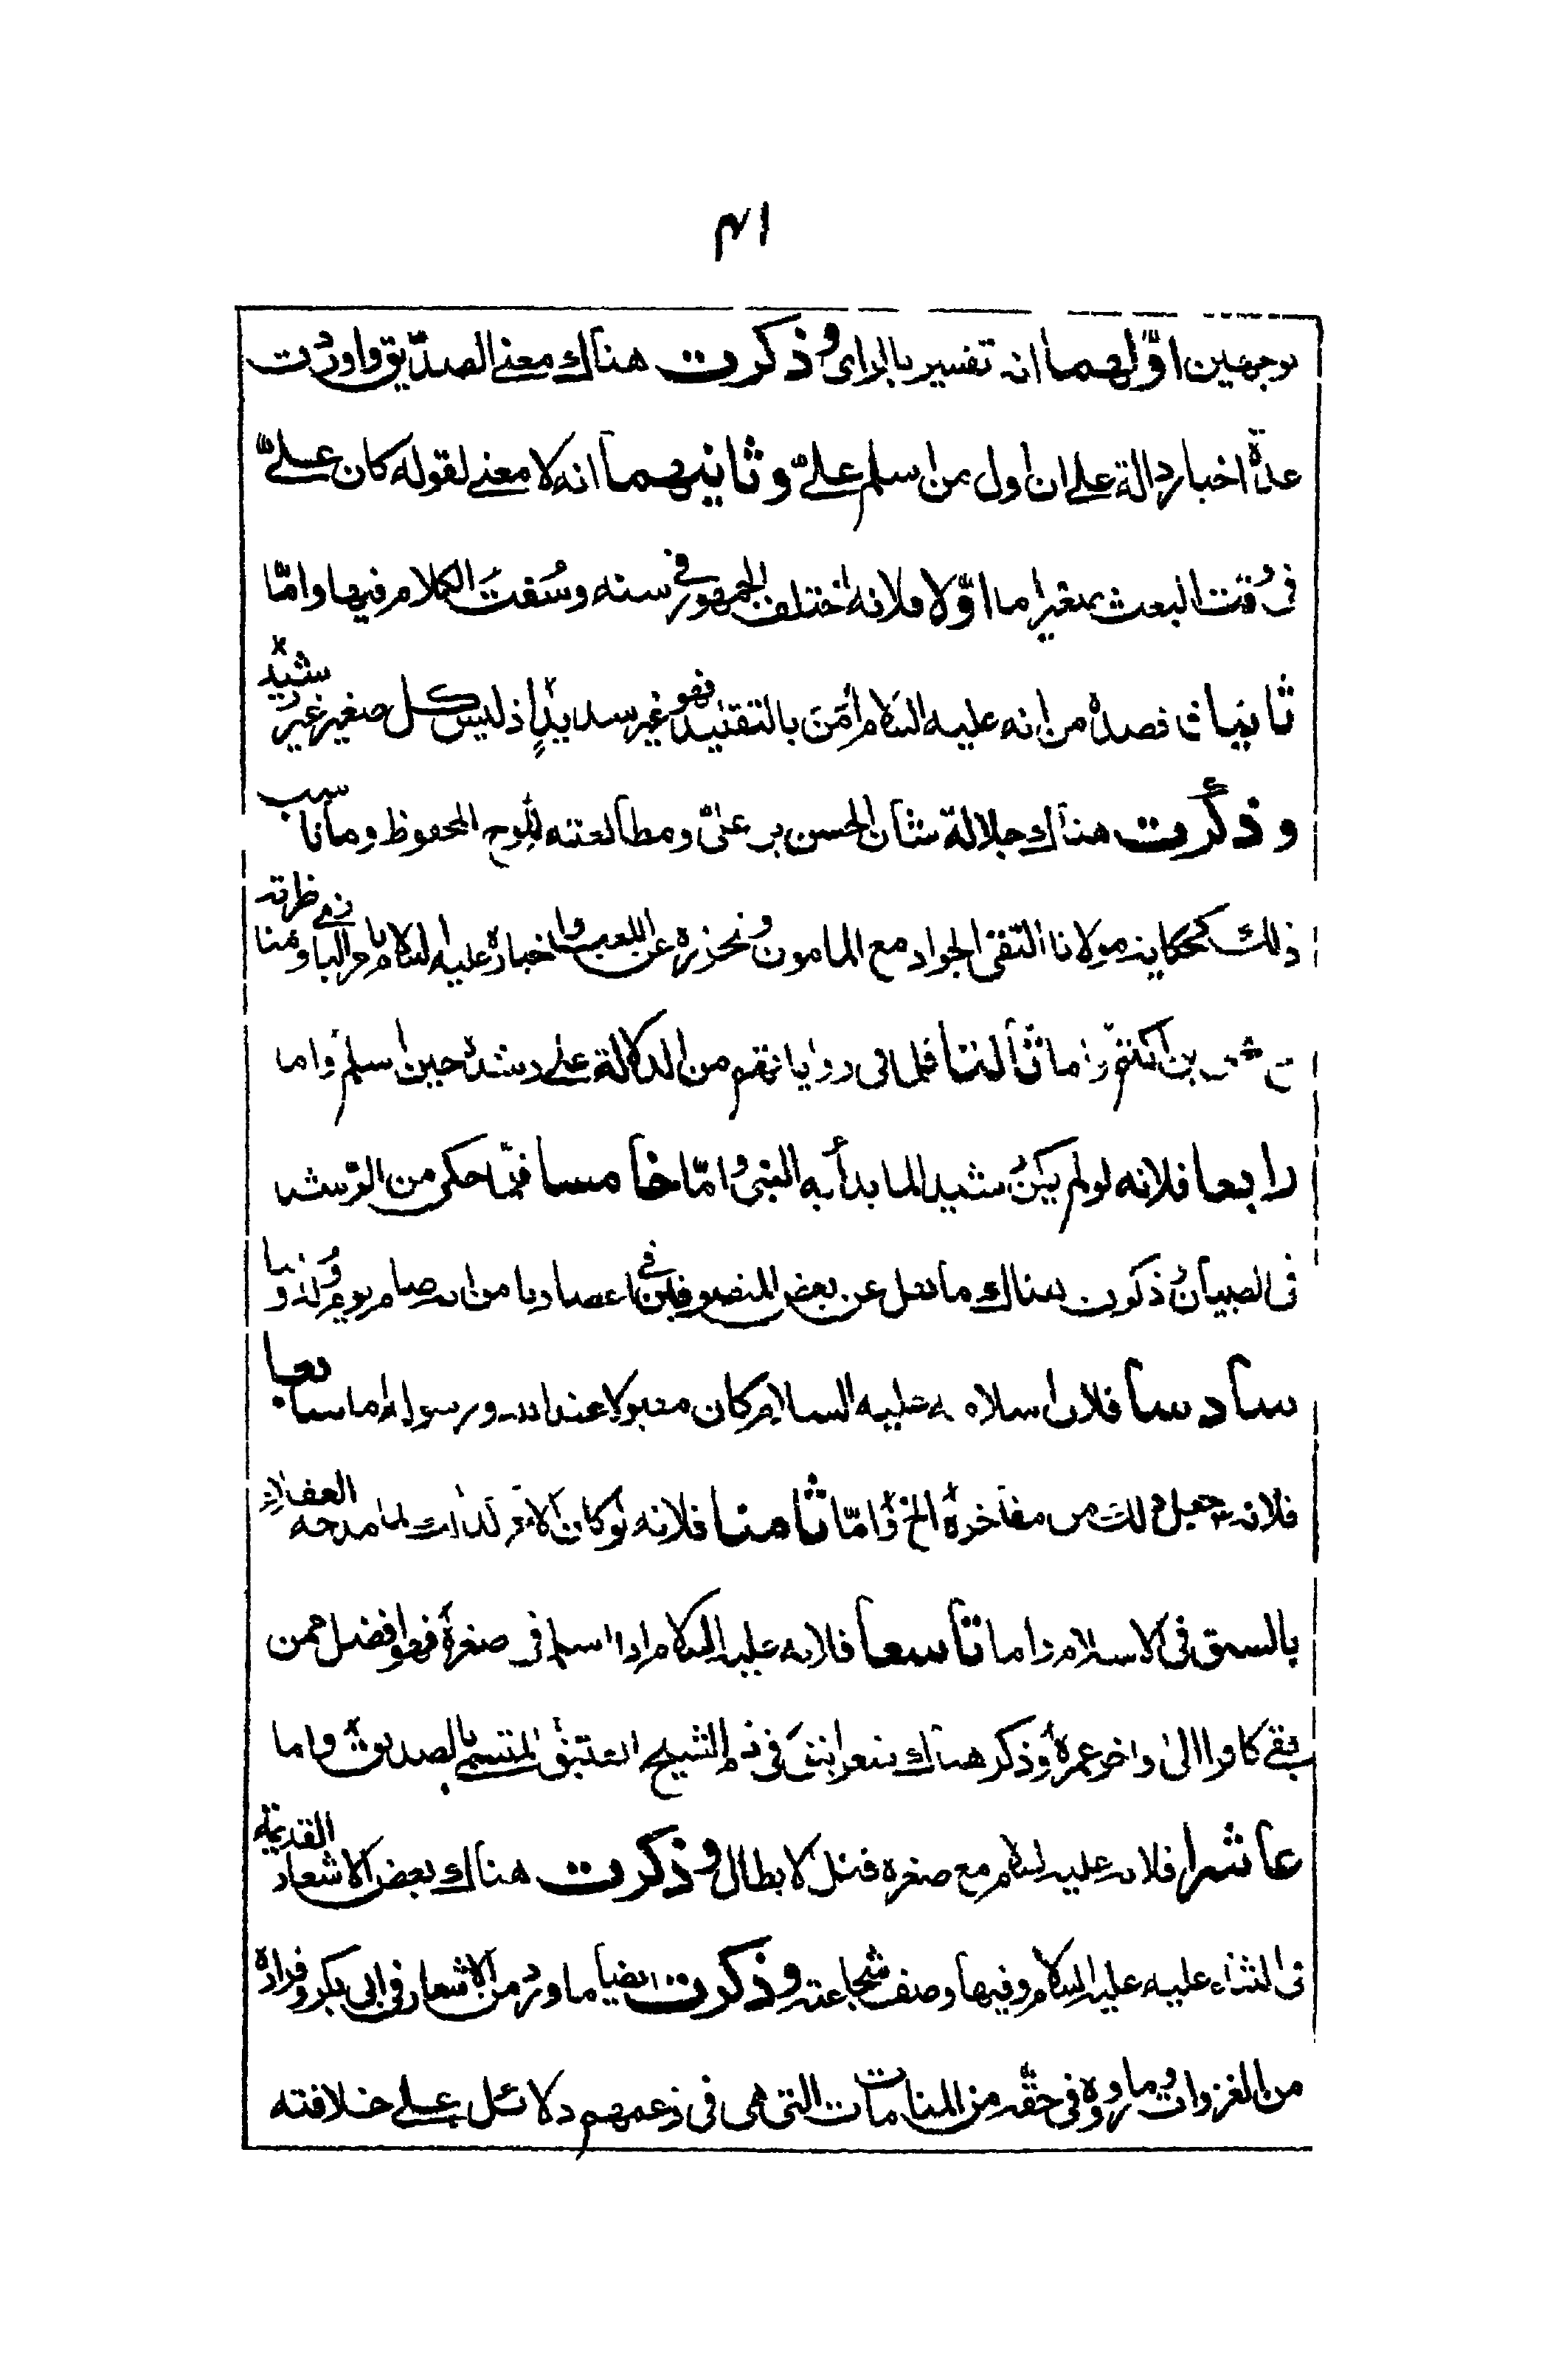 ۴۱
بوجهين اوّلهما انه تفسير بالراى وذكرت هناك معنى الصدّيق واوردت
عدّة اخبار دالة على ان اول من اسلم علىّ وثانيهما انه لا معنى لقوله كان علىّ
فى وقت البعث صغيرا ما اوّلا فلانه اختلف الجمهور فى سنه وسُقتَ الكلام فيها وامّا
ثانيا فصده من انه عليه السلام امَنَ بالتقليد فهو غير سديدٍ اذ ليس كل صغير غير رشيد
وذكرت هناك جلالة شان الحسن بن علىّ ومطالعته للوح المحفوظ وما ناسب
ذلك كحكاية مولانا التقى الجواد مع المامون وتحذره عن اللعب واخباره عليه السلام
بن اكثم واما ثالثا فلما فى روايا تقم من الدلالة على رشده حين اسلم واما
رابعا فلانه لو لم يكنُ رشيد الما بدأ به النبىُ وامّا خامسا فبما حكى من الرّشد
فى الصبيان وذكرت هناك ما نقل عن بعض المتصوفين فى اعصارنا من انه صام يوم ولد و
سادسا فلان اسلامه عليه السلام كان مقبولا عند الله ورسوله اما سابعا
فلانه جعل ذلك من مفاخره الخ وامّا ثامنا فلانه لو كان الامر كذلك لما مدحه العقلاء
بالسبق فى الاسلام واما تاسعا فلانه عليه السلام اذا اسلم فى صغره فهو افضل ممن
بقى كافرا الى واخر عمره وذكر هناك شعرا بنتف فى ذم الشيخ العتيق المتسمى بالصديق واما
عاشرا فلانه عليه السلام مع صغره قتل الابطال وذكرت هناك بعض الاشعار القديمة
فى الثناء عليه عليه السلام وفيها وصف شجاعته وذكرت ايضا ما ورد من الاشعار فى ابى بكر وفراره
من الغزوات وما رووه فى حقّه من المنامات التى هى فى زعمهم دلائل على خلافته